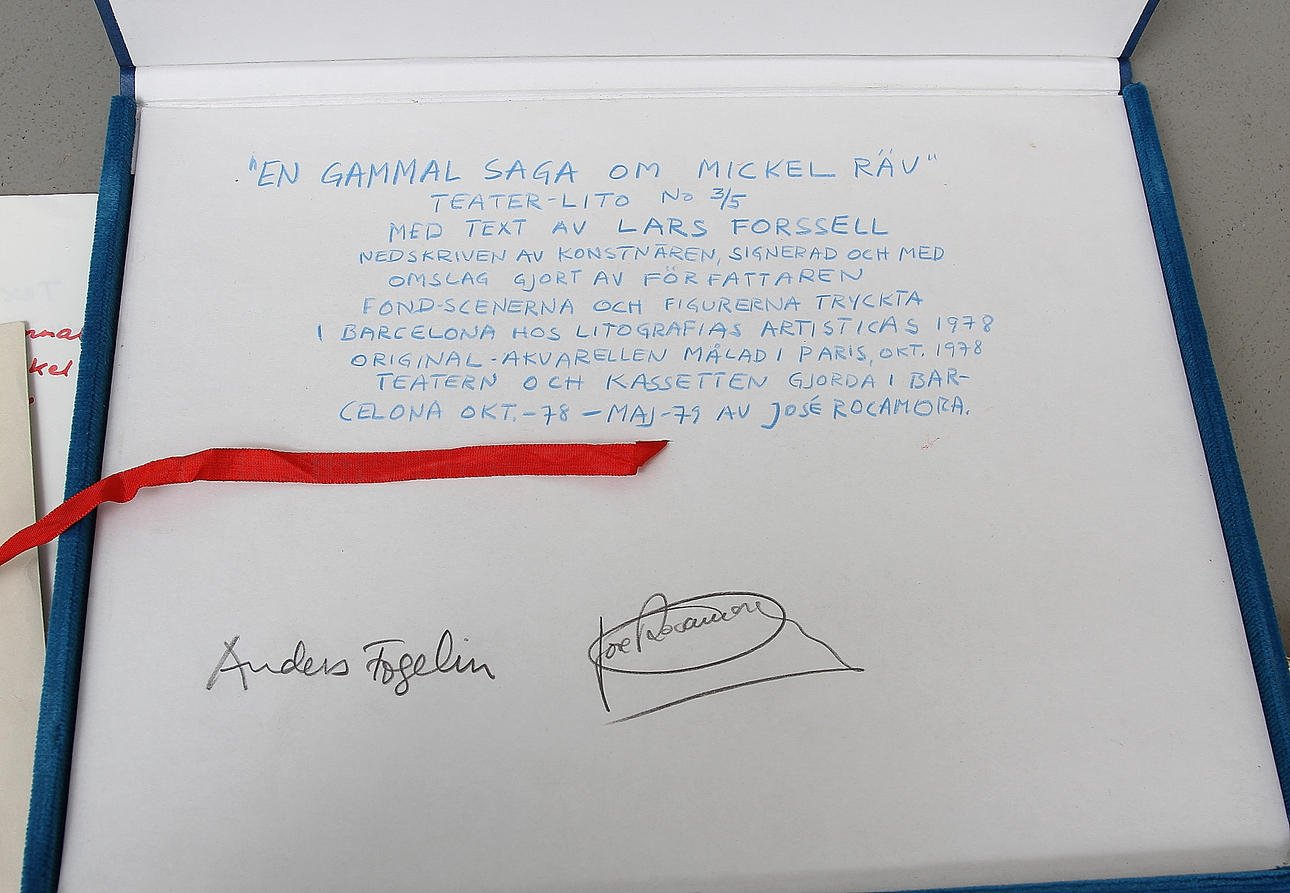 "EN GAMMAL SAGA OM MICKEL RÄV"
TEATER-LITO No 3/5
MED TEXT AV LARS FORSSELL
NEDSKRIVEN AV KONSTNÄREN, SIGNERAD OCH MED
OMSLAG GJORT AV FÖRFATTAREN
FOND-SCENERNA OCH FIGURERNA TRYCKTA
I BARCELONA HOS LITOGRAFIAS ARTISTICAS 1978
ORIGINAL-AKVARELLEN MÅLAD I PARIS, OKT. 1978
TEATERN OCH KASSETTEN GJORDA I BAR-
CELONA OKT.-78 - MAJ-79 AV JOSÉ ROCAMORA.
Anders Fogelin
José Rocamora